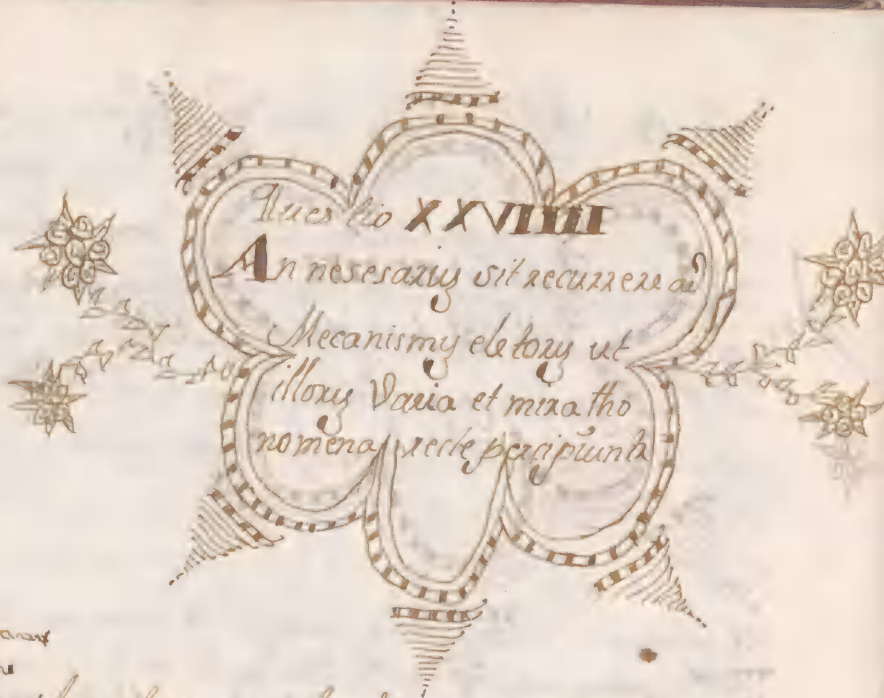 Questio XXVIIII
An nesesariꝰ sit recurrere ad
Mecanismꝰ eletorꝰ ut
illorꝰ Varia et mira tho
nomena recte percipiunt